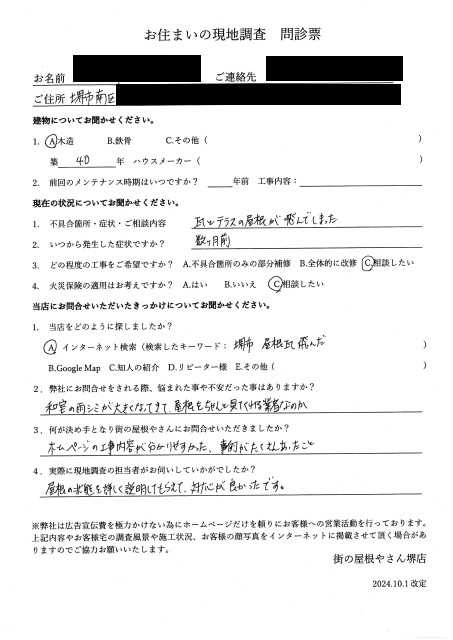 お住まいの現地調査　問診票
お名前　ご連絡先
ご住所 堺市南区
建物についてお聞かせください。
1. A.木造　B.鉄骨　C.その他（　）
築 40 年　ハウスメーカー（　）
2. 前回のメンテナンス時期はいつですか？ ＿＿年前　工事内容：
現在の状況についてお聞かせください。
1. 不具合箇所・症状・ご相談内容　瓦とテラスの屋根が飛んでしまった
2. いつから発生した症状ですか？　数ヶ月前
3. どの程度の工事をご希望ですか？ A.不具合箇所のみの部分補修　B.全体的に改修　C.相談したい
4. 火災保険の適用はお考えですか？ A.はい　B.いいえ　C.相談したい
当店にお問合せいただいたきっかけについてお聞かせください。
1. 当店をどのように探しましたか？
A. インターネット検索（検索したキーワード： 堺市　屋根瓦 飛んだ ）
B.Google Map　C.知人の紹介　D.リピーター様　E.その他（　）
2. 弊社にお問合せをされる際、悩まれた事や不安だった事はありますか？
和室の雨シミが大きくなってきて、屋根をちゃんと見てくれる業者なのか
3. 何が決め手となり街の屋根やさんにお問合せいただきましたか？
ホームページの工事内容が分かりやすかった、事例がたくさんあったこと
4. 実際に現地調査の担当者がお伺いしていかがでしたか？
屋根の状態を詳しく説明してもらえて、対応が良かったです。
※弊社は広告宣伝費を極力かけない為にホームページだけを頼りにお客様への営業活動を行っております。
上記内容やお客様宅の調査風景や施工状況、お客様の顔写真をインターネットに掲載させて頂く場合があ
りますのでご協力お願いいたします。
街の屋根やさん堺店
2024.10.1 改定